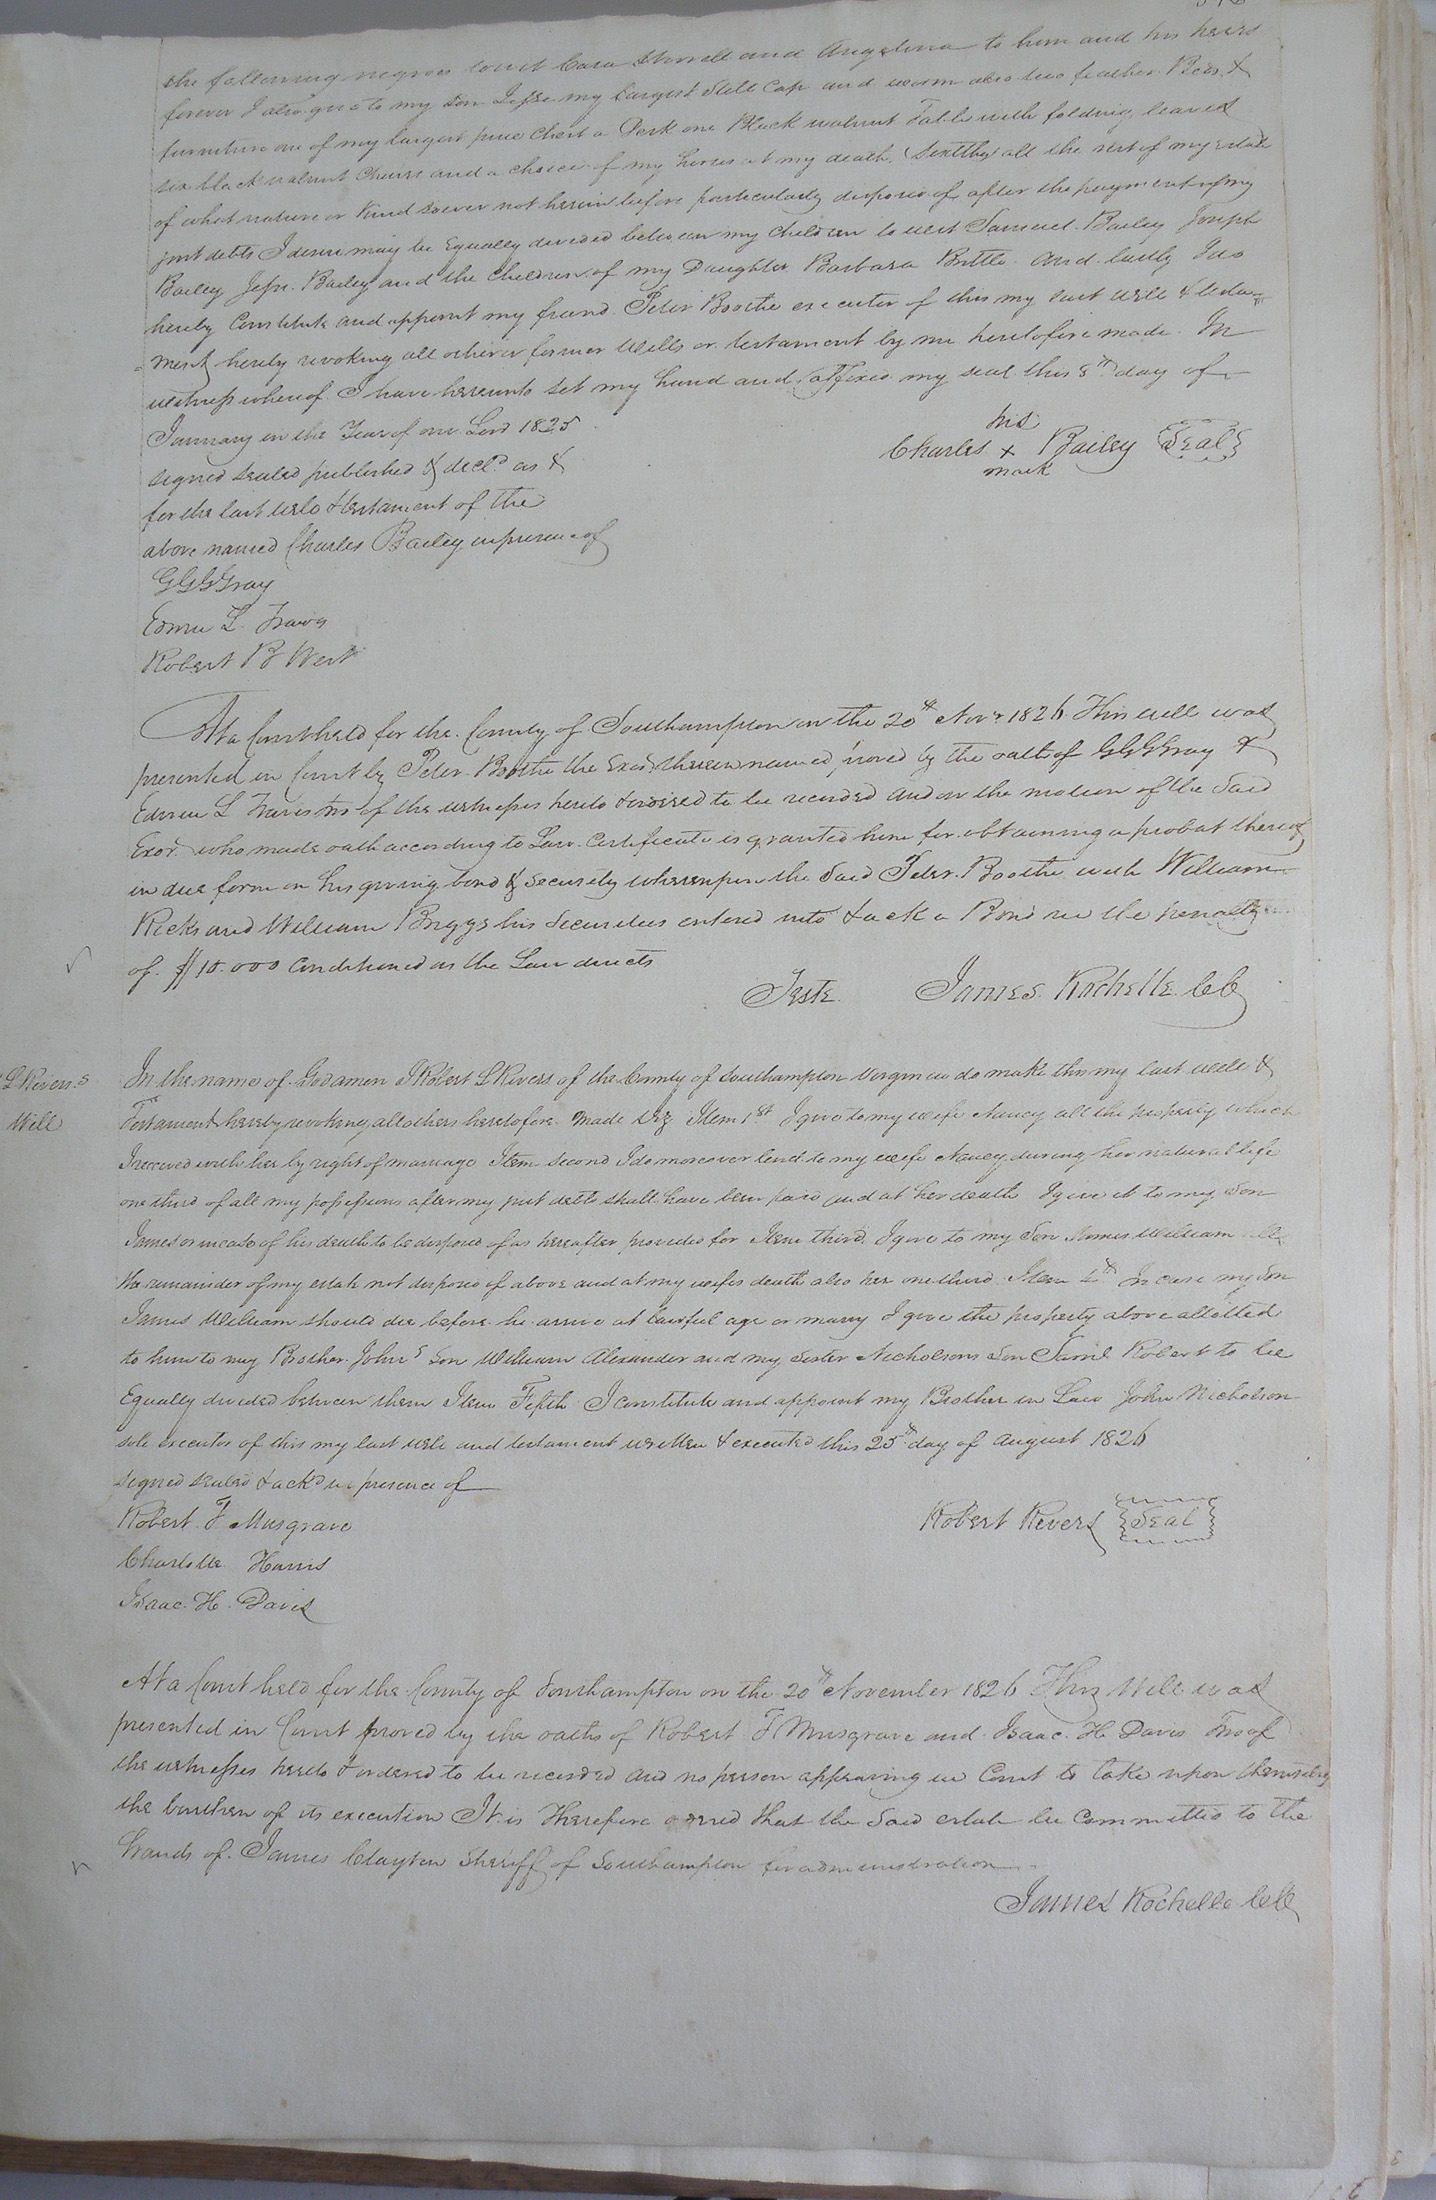 the following negroes towit Cara Worrell and Angelina to him and his heirs
forever I also give to my son Jesse my largest Still Cap and worm also two feather Beds &
furniture one of my largest pine Chest a Desk one Black walnut Table with folding leaves
six black walnut Chairs and a choice of my horses at my death. Sixthly all the rest of my estate
of what nature or kind soever not herein before particularly disposed of after the payment of my
just debts I desire may be Equally devided between my Children to wit Samuel Bailey Joseph
Bailey Jesse Bailey and the Children of my Daughter Barbara Brittle and lastly I do
hereby Constitute and appoint my friend Peter Boothe executor of this my last will & testa=
ment hereby revoking all other or former Wills or testament by me heretofore made In
witness whereof I have hereunto set my hand and affixed my seal this 8th day of
January in the Year of our Lord 1825
his
Charles x Bailey {Seal}
mark
signed sealed published & decld as &
for the last will & testament of the
above named Charles Bailey in presence of
G G G Gray
Edwin L. Travis
Robert B West
At a Court held for the County of Southampton on the 20th Novr 1826 This will was
presented in Court by Peter Boothe the Exor therein named proved by the oath of G G G Gray &
Edwin L Travis two of the witnesses hereto & ordered to be recorded and on the motion of the said
Exor who made oath according to Law Certificate is granted him for obtaining a probat thereof
in due form on his giving bond & security whereupon the said Peter Boothe with William
Ricks and William Briggs his securities entered into & ack a Bond in the penalty
of $10.000 Conditioned as the Law directs
Teste James Rochelle CC
L Rivers's
Will
In the name of God amen I Robert L Rivers of the County of Southampton Virginia do make this my last will &
Testament hereby revoking all others heretofore made Viz Item 1st I give to my wife Nancy all the property which
I received with her by right of marriage Item Second I do moreover lend to my wife Nancy during her natural life
one third of all my possessions after my just debts shall have been paid and at her death I give it to my son
James or in case of his death to be disposed of as hereafter provided for Item third I give to my Son James William all
the remainder of my estate not disposed of above and at my wifes death also her one third Item 4th In case my son
James William should die before he arrive at lawful age or marry I give the property above allotted
to him to my Brother John's son William Alexander and my sister Nicholsons son Saml Robert to be
Equally devided between them Item Fifth I constitute and appoint my Brother in Law John Nicholson
sole executor of this my last will and testament written & executed this 25th day of august 1826
signed sealed & ackd in presence of
Robert Rivers {Seal}
Robert F Musgrave
Charlotte Harris
Isaac. H. Davis
At a Court held for the County of Southampton on the 20th November 1826 This Will was
presented in Court proved by the oaths of Robert F Musgrave and Isaac. H Davis Two of
the witnesses hereto & ordered to be recorded and no person appearing in Court to take upon themselves
the burthen of its execution It is Therefore ordered that the said estate be committed to the
hands of James Clayton Sheriff of Southampton for administration
James Rochelle CC